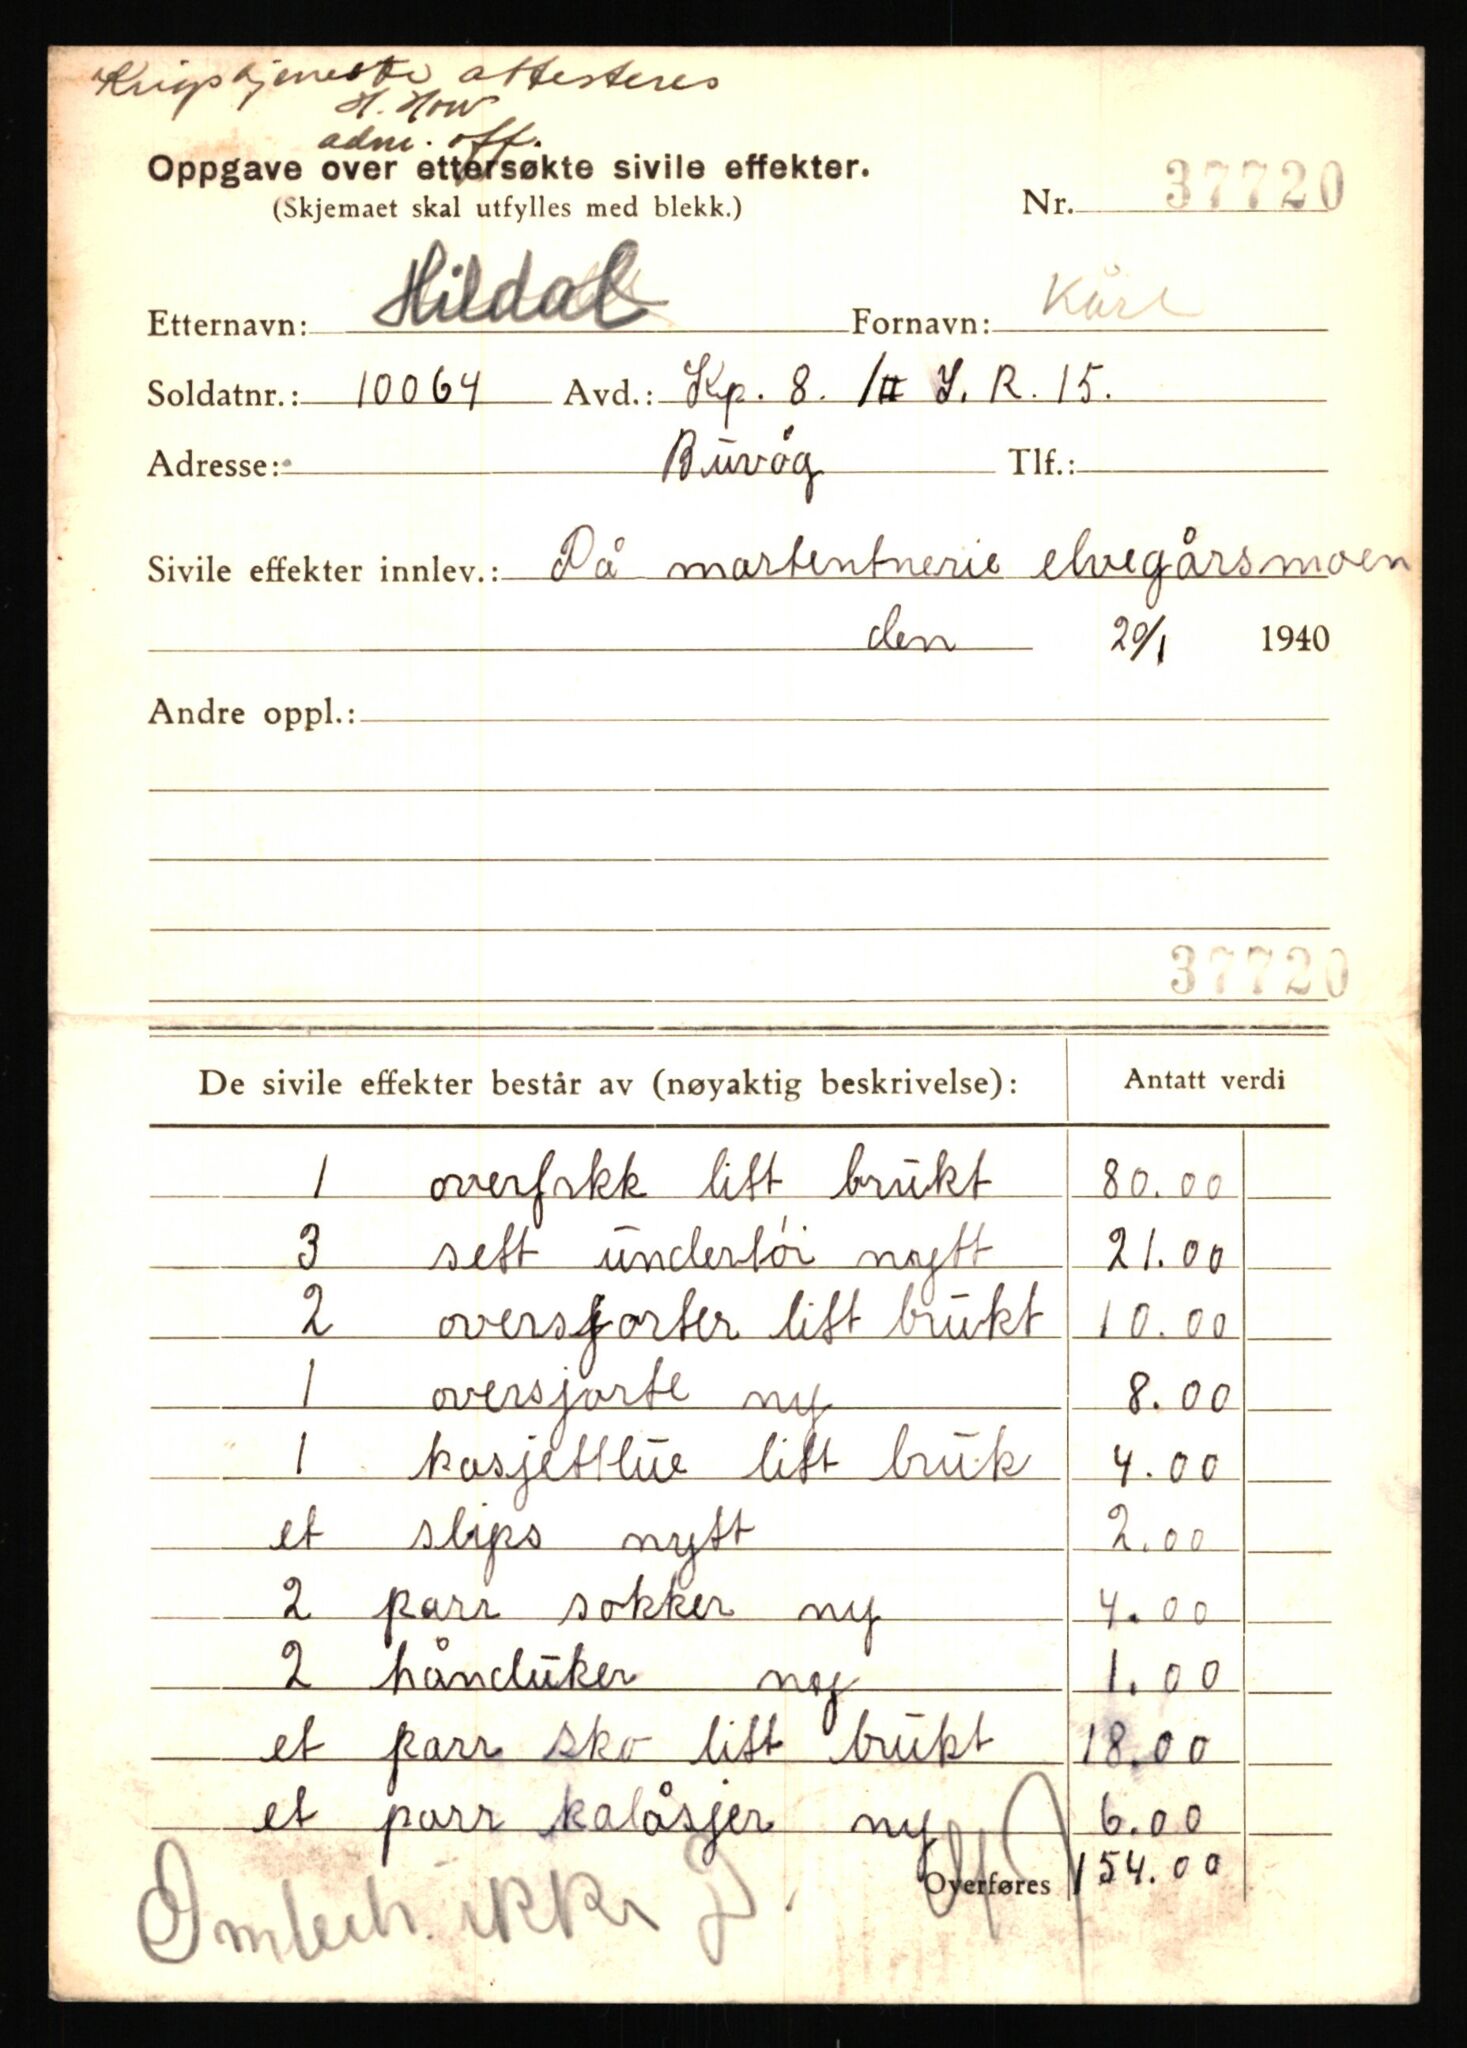 Krigstjeneste attesteres
H. How
adm. off.
Oppgave over ettersøkte sivile effekter.
(Skjemaet skal utfylles med blekk.)
Nr. 37720
Etternavn: Hildal Fornavn: Kåre
Soldatnr.: 10064 Avd.: Kp. 8. I. R. 15.
Adresse: Buvåg Tlf.:
Sivile effekter innlev.: På martentnerie elvegårsmoen
den 20/1 1940
Andre oppl.:
37720
De sivile effekter består av (nøyaktig beskrivelse): Antatt verdi
1 overfrkk litt brukt 80.00
3 sett undertöi nytt 21.00
2 oversjorter litt brukt 10.00
1 oversjorte ny 8.00
1 kasjettlue litt bruk 4.00
et slips nytt 2.00
2 parr sokker ny 4.00
2 hånduker noy 1.00
et parr sko litt brukt 18.00
et parr kalåsjer ny 6.00
Overføres 154.00
ikke